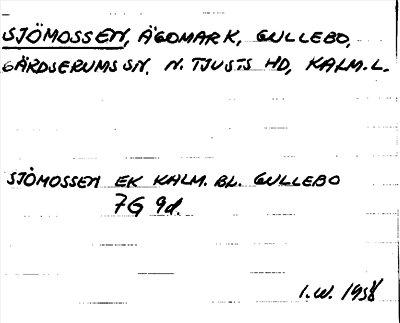 SJÖMOSSEN, ÄGOMARK, GULLEBO,
GÄRDSERUMS SN, N. TJUSTS HD, KALM. L.
SJÖMOSSEN EK KALM. BL. GULLEBO
7G 9d.
I.W. 1958